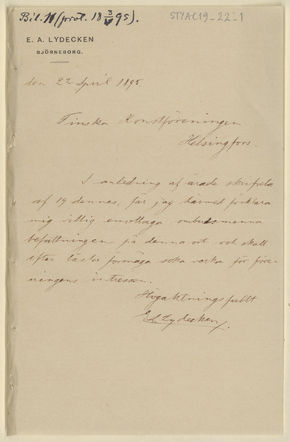 Bil. 11 (prot. 18 3/V 95).
STYAC19_22_1
E. A. LYDECKEN
BJÖRNEBORG.
den 22 April 1895
Finska Konstföreningen
Helsingfors.
I anledning af ärade skrifvelse
af 19 dennes, får jag härmed förklara
mig villig emottaga ombudsmanna
befattningen på denna ort och skall
efter bästa förmåga söka verka för före-
ningens intressen.
Högaktningsfullt
E A Lydecken